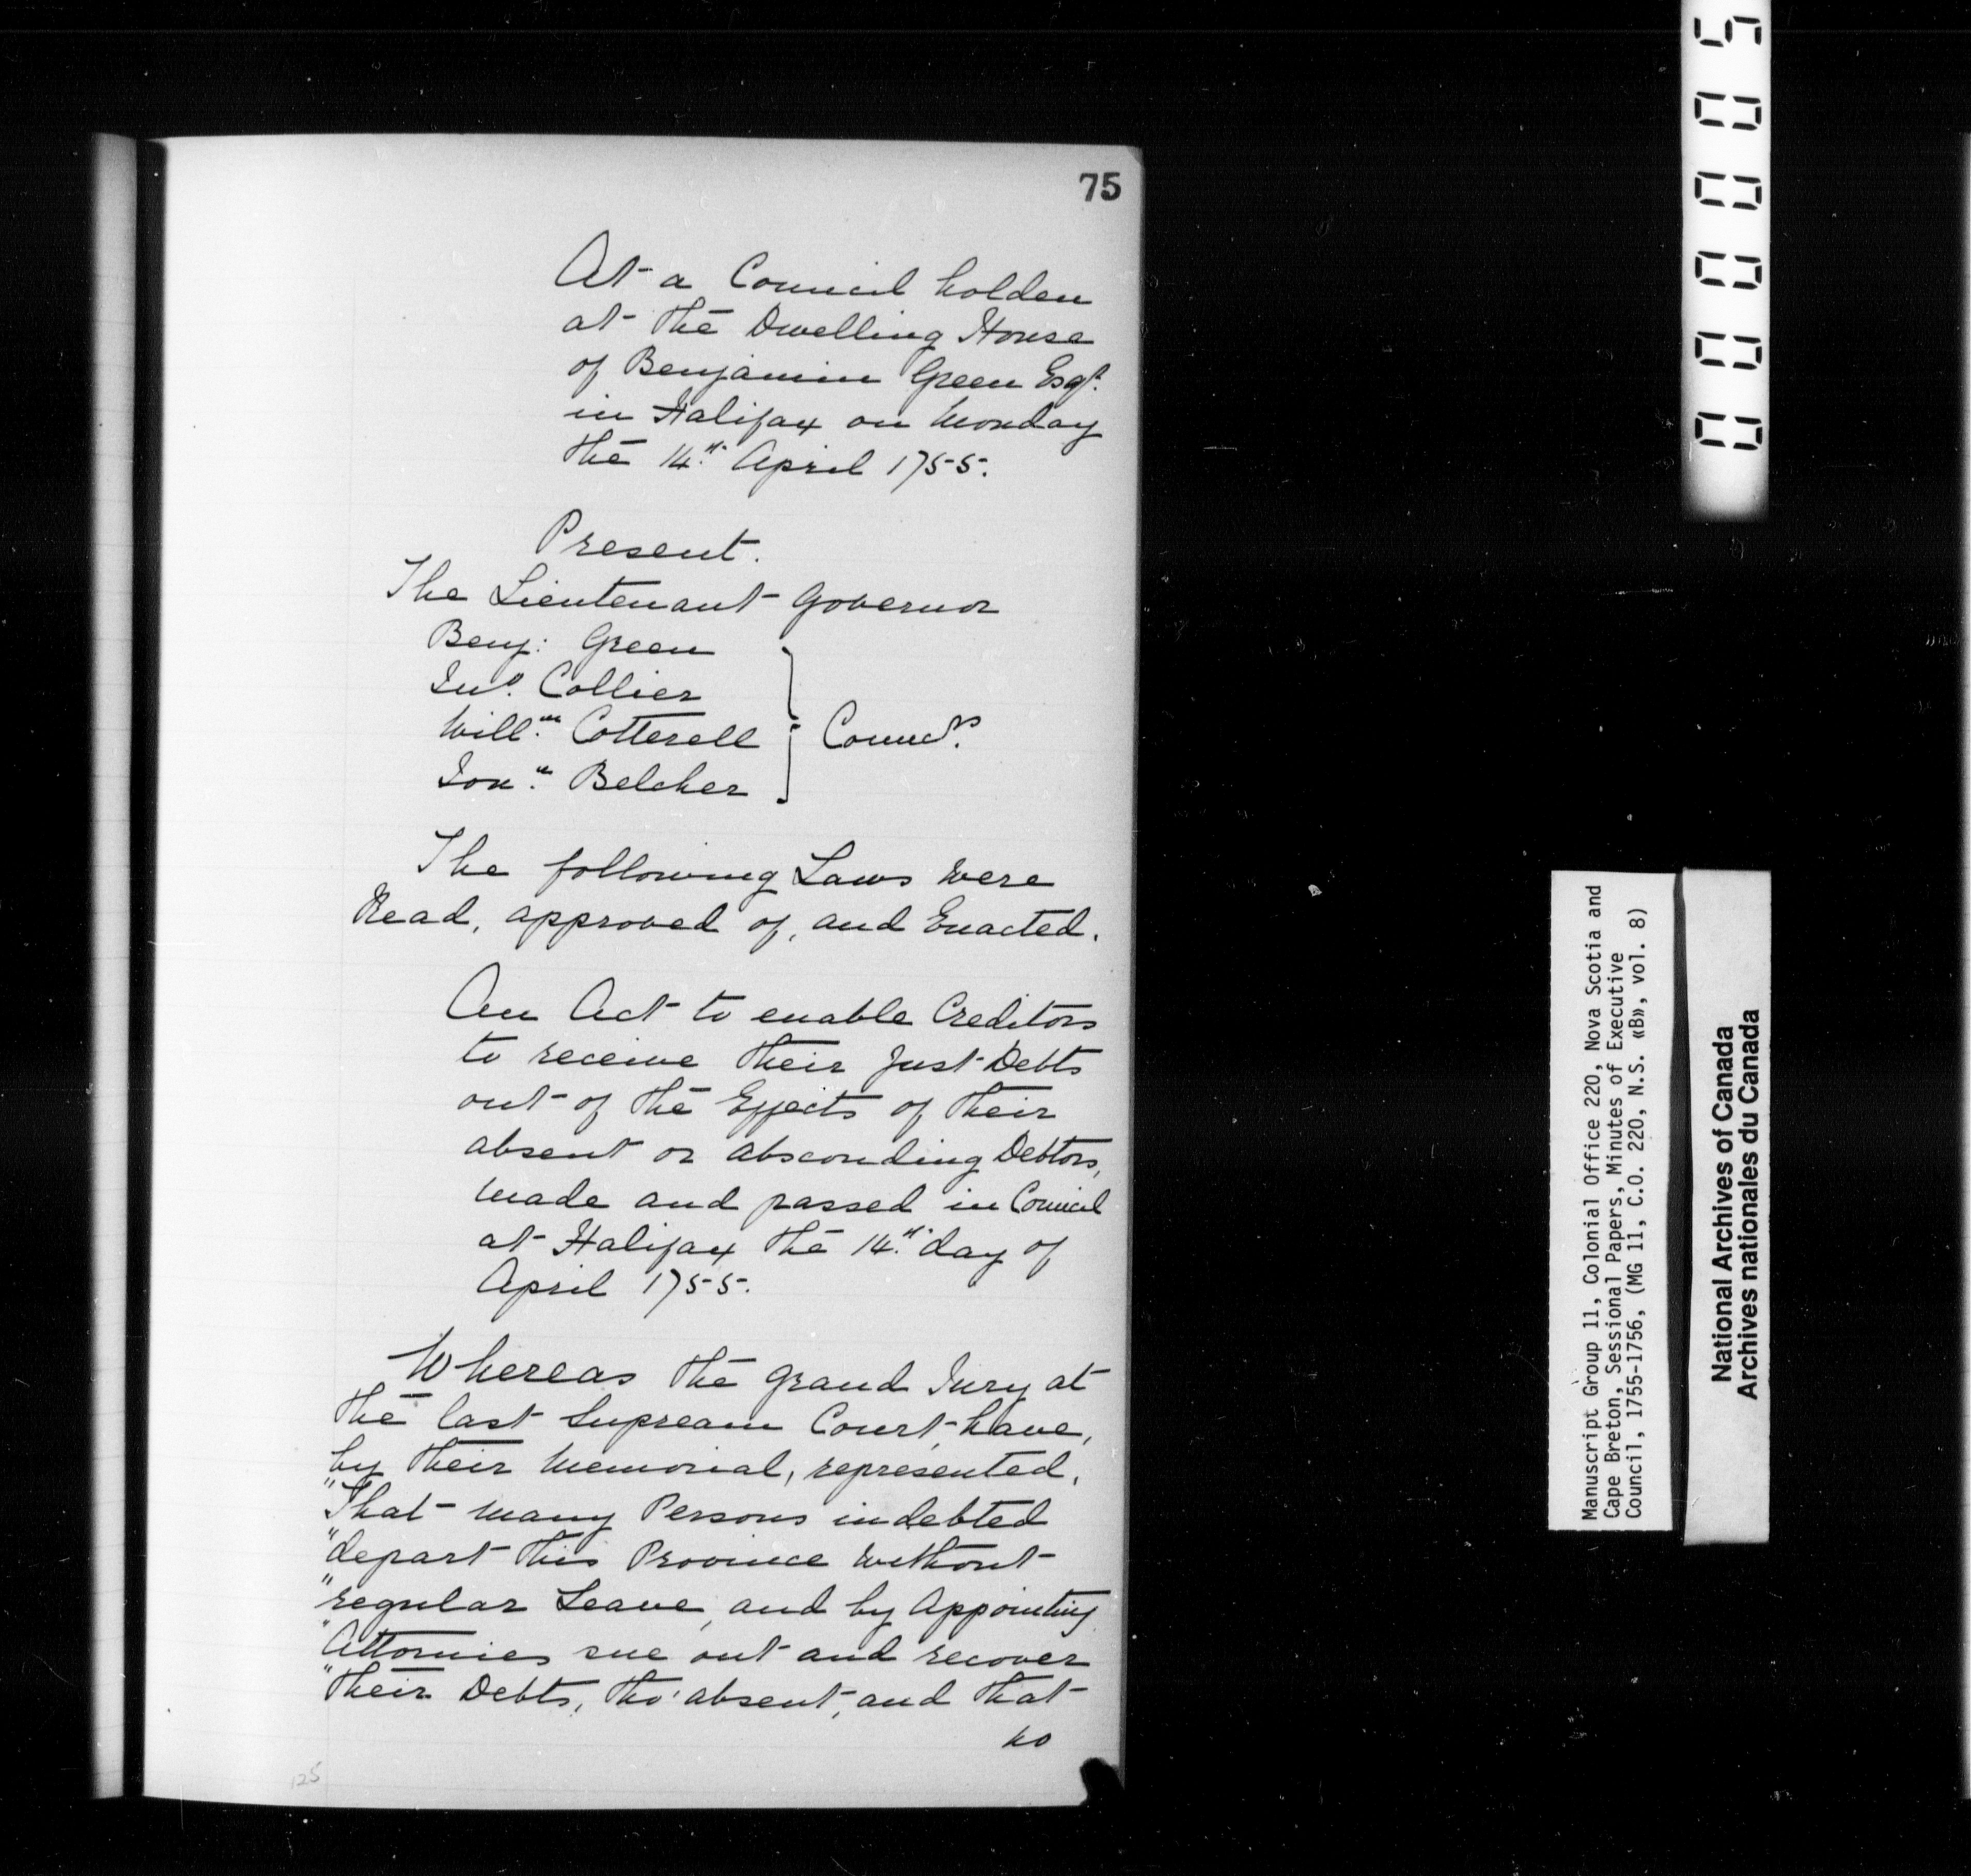 75
At a Council holden
at the Dwelling House
of Benjamin Green Esqr.
in Halifax on Monday
the 14.th April 1755.
Present.
The Lieutenant Governor
Benj: Green
Jno. Collier
Will.m Cotterell
Jon.n Belcher
Councrs.
The following Laws were
Read, approved of, and Enacted.
An Act to enable Creditors
to receive their Just Debts
out of the Effects of their
absent or absconding Debtors,
made and passed in Council
at Halifax the 14.th day of
April 1755.
Whereas the Grand Jury at
the last Supream Court, have,
by their Memorial, represented,
"That many Persons indebted
"depart this Province without
"regular Leave, and by Appointing
"Attornies sue out and recover
"their Debts, tho' absent, and that
no
125
000005
Manuscript Group 11, Colonial Office 220, Nova Scotia and
Cape Breton, Sessional Papers, Minutes of Executive
Council, 1755-1756, (MG 11, C.O. 220, N.S. «B», vol. 8)
National Archives of Canada
Archives nationales du Canada